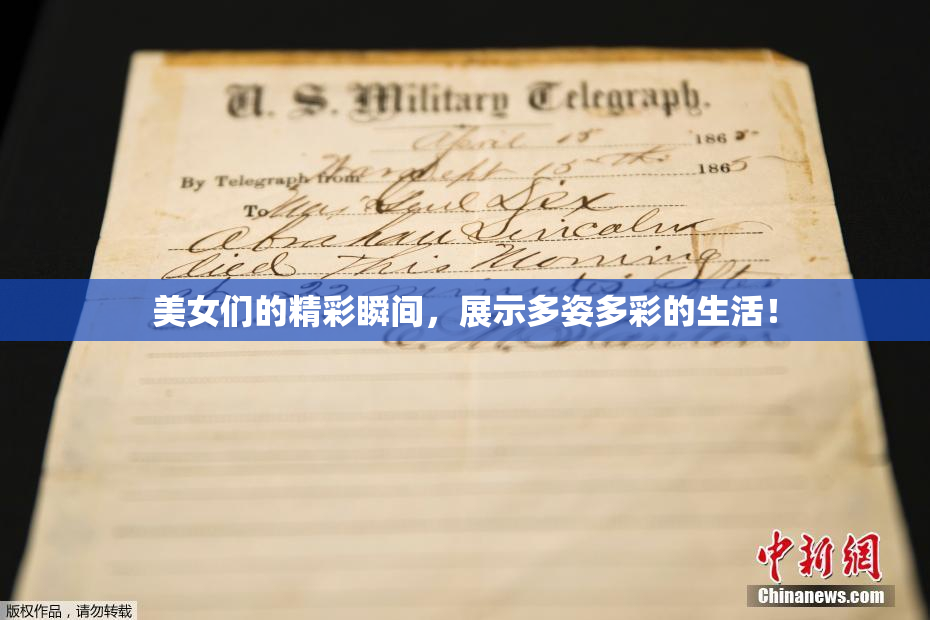 U. S. Military Telegraph.
April 15 1865
By Telegraph from War Dept 15th 1865
To Maj Genl Dix
Abraham Lincoln
died This Morning
at 22 minutes after
美女们的精彩瞬间，展示多姿多彩的生活！
E. M. Stanton
中新網
Chinanews.com
版权作品，请勿转载